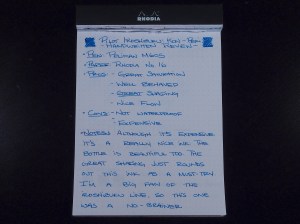 RHODIA
Pilot Iroshizuku Kon-Peki
Handwritten Review
• Pen: Pelikan M205
• Paper: Rhodia No. 16
• Pros: - Great Saturation
- Well Behaved
- Great Shading
- Nice Flow
• Cons: - Not Waterproof
- Expensive
• Notes: Although it's expensive
it's a really nice ink. The
bottle is beautiful too. The
great shading just rounds
out this ink as a must try.
I'm a big fan of the
Iroshizuku line so this one
was a no-brainer.